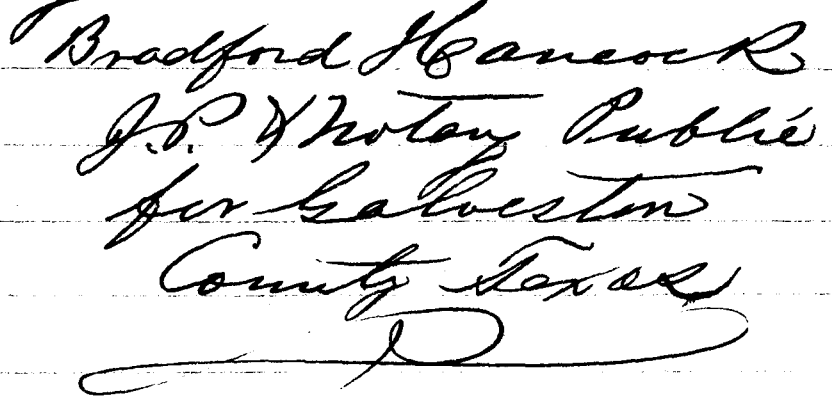 Bradford Hancock
J.P. & Notary Public
for Galveston
County Texas